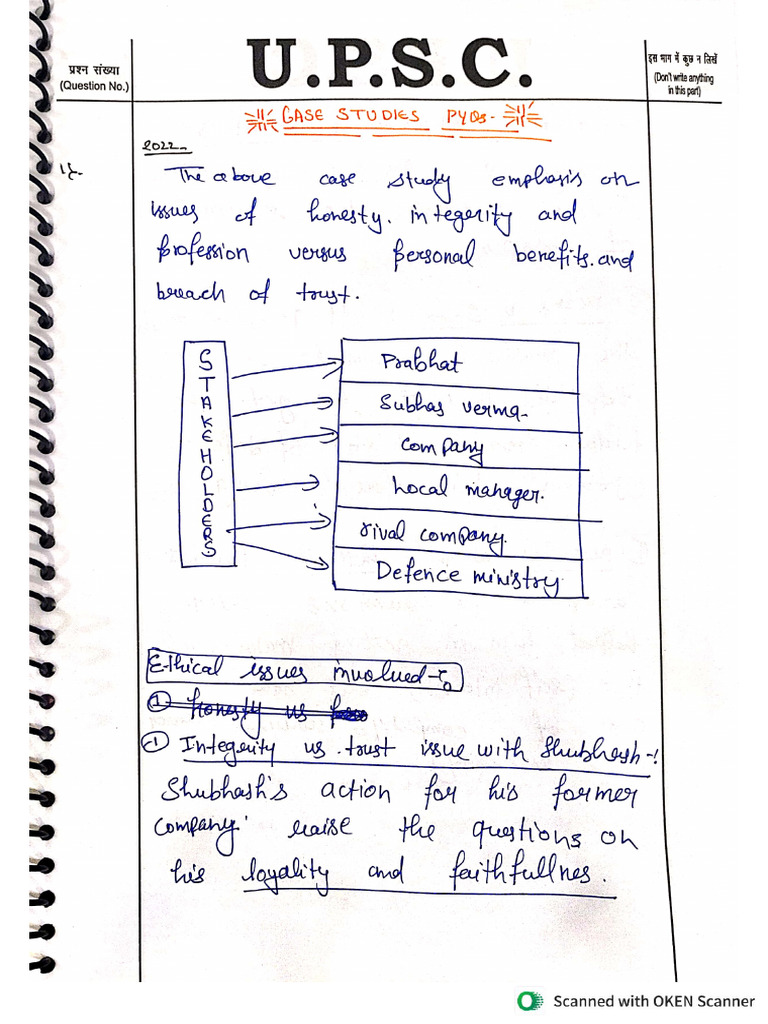 प्रश्न संख्या
(Question No.)
U.P.S.C.
इस भाग में कुछ न लिखें
(Don't write anything
in this part)
CASE STUDIES PYQs-
2022-
The above case study emphasis on
issues of honesty. integerity and
profession versus personal benefits. and
breach of trust.
STAKEHOLDERS
Prabhat
Subhas verma-
company
Local manager.
rival company.
Defence ministry
Ethical issues involved-
① honesty vs
-① Integerity vs. trust issue with Shubhash-!
Shubhash's action for his former
company. raise the questions on
his loyality and faithfullnes.
Scanned with OKEN Scanner